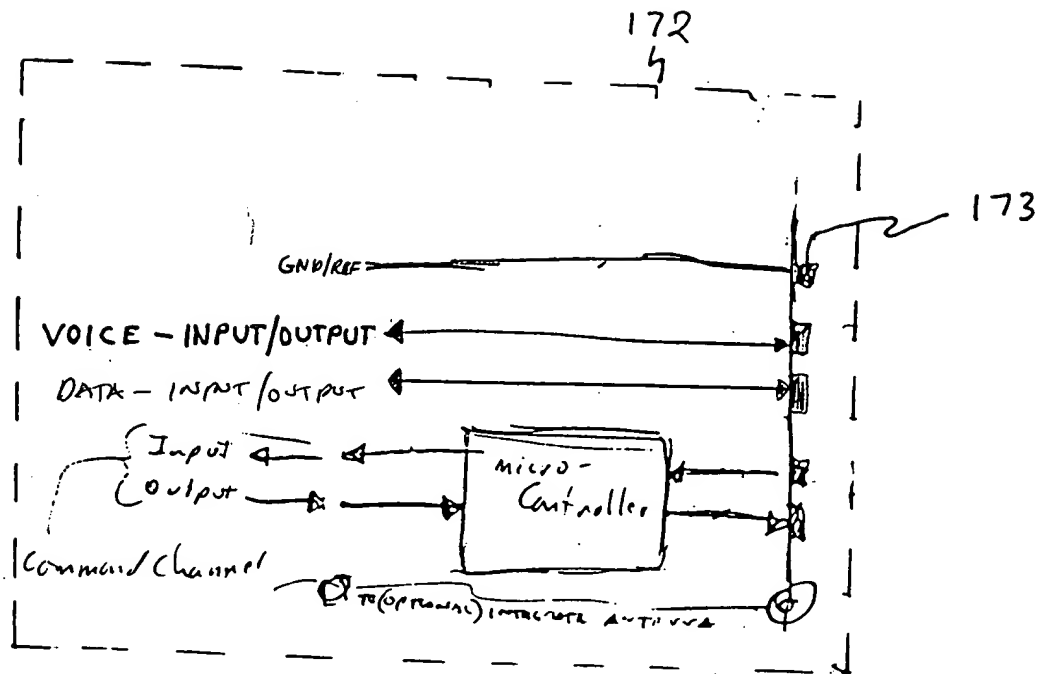 172
173
GND/REF
VOICE - INPUT/OUTPUT
DATA - INPUT/OUTPUT
Input
Output
micro-
Controller
Command Channel
TO (OPTIONAL) ANTENNA